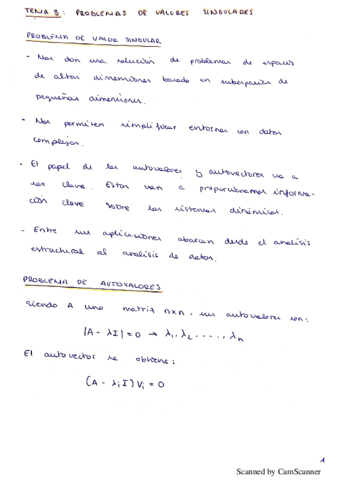 TEMA 5: PROBLEMAS DE VALORES SINGULARES
PROBLEMA DE VALOR SINGULAR
- Nos dan una solución de problemas de espacio
de altas dimensiones basado en subespacios de
pequeñas dimensiones.
- Nos permiten simplificar entornos con datos
complejos.
- El papel de los autovalores y autovectores va a
ser clave. Estos van a proporcionarnos informa-
ción clave sobre los sistemas dinámicos.
- Entre sus aplicaciones abarcan desde el analisis
estructural al analisis de datos.
PROBLEMA DE AUTOVALORES
Siendo A una matriz nxn, sus autovalores son:
|A - λI| = 0 → λ₁, λ₂, ....., λₙ
El autovector se obtiene:
(A - λᵢI)Vᵢ = 0
1
Scanned by CamScanner